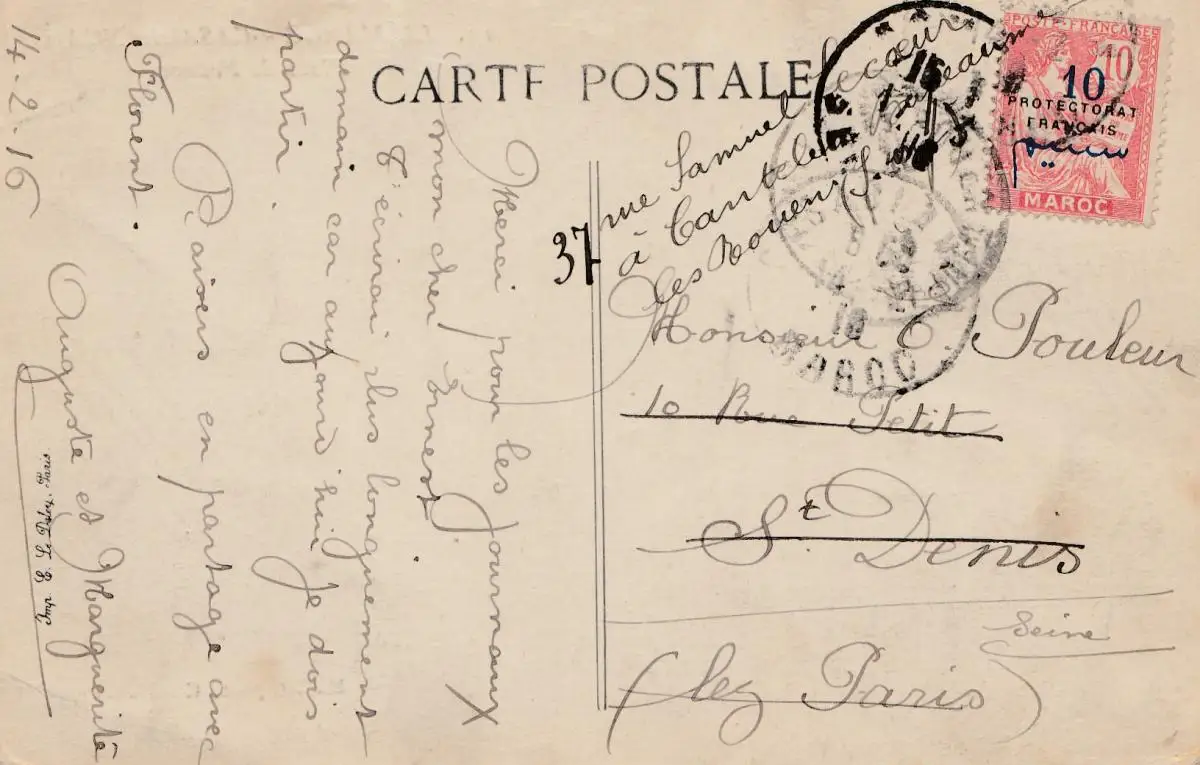 CARTE POSTALE
POSTE FRANÇAISE
10
10
PROTECTORAT
FRANÇAIS
MAROC
MAROC
37 rue Samuel Lecoeur
à Canteleu
les Rouen
Monsieur E. Pouleur
10 Rue Petit
St. Denis
Seine
(lez Paris)
Merci pour les Journaux
mon cher Ernest.
T'écrirai plus longuement
demain car aujourd'hui Je dois
partir.
Baisers en partage avec
Florent.
Auguste et Marguerite
14-2-16